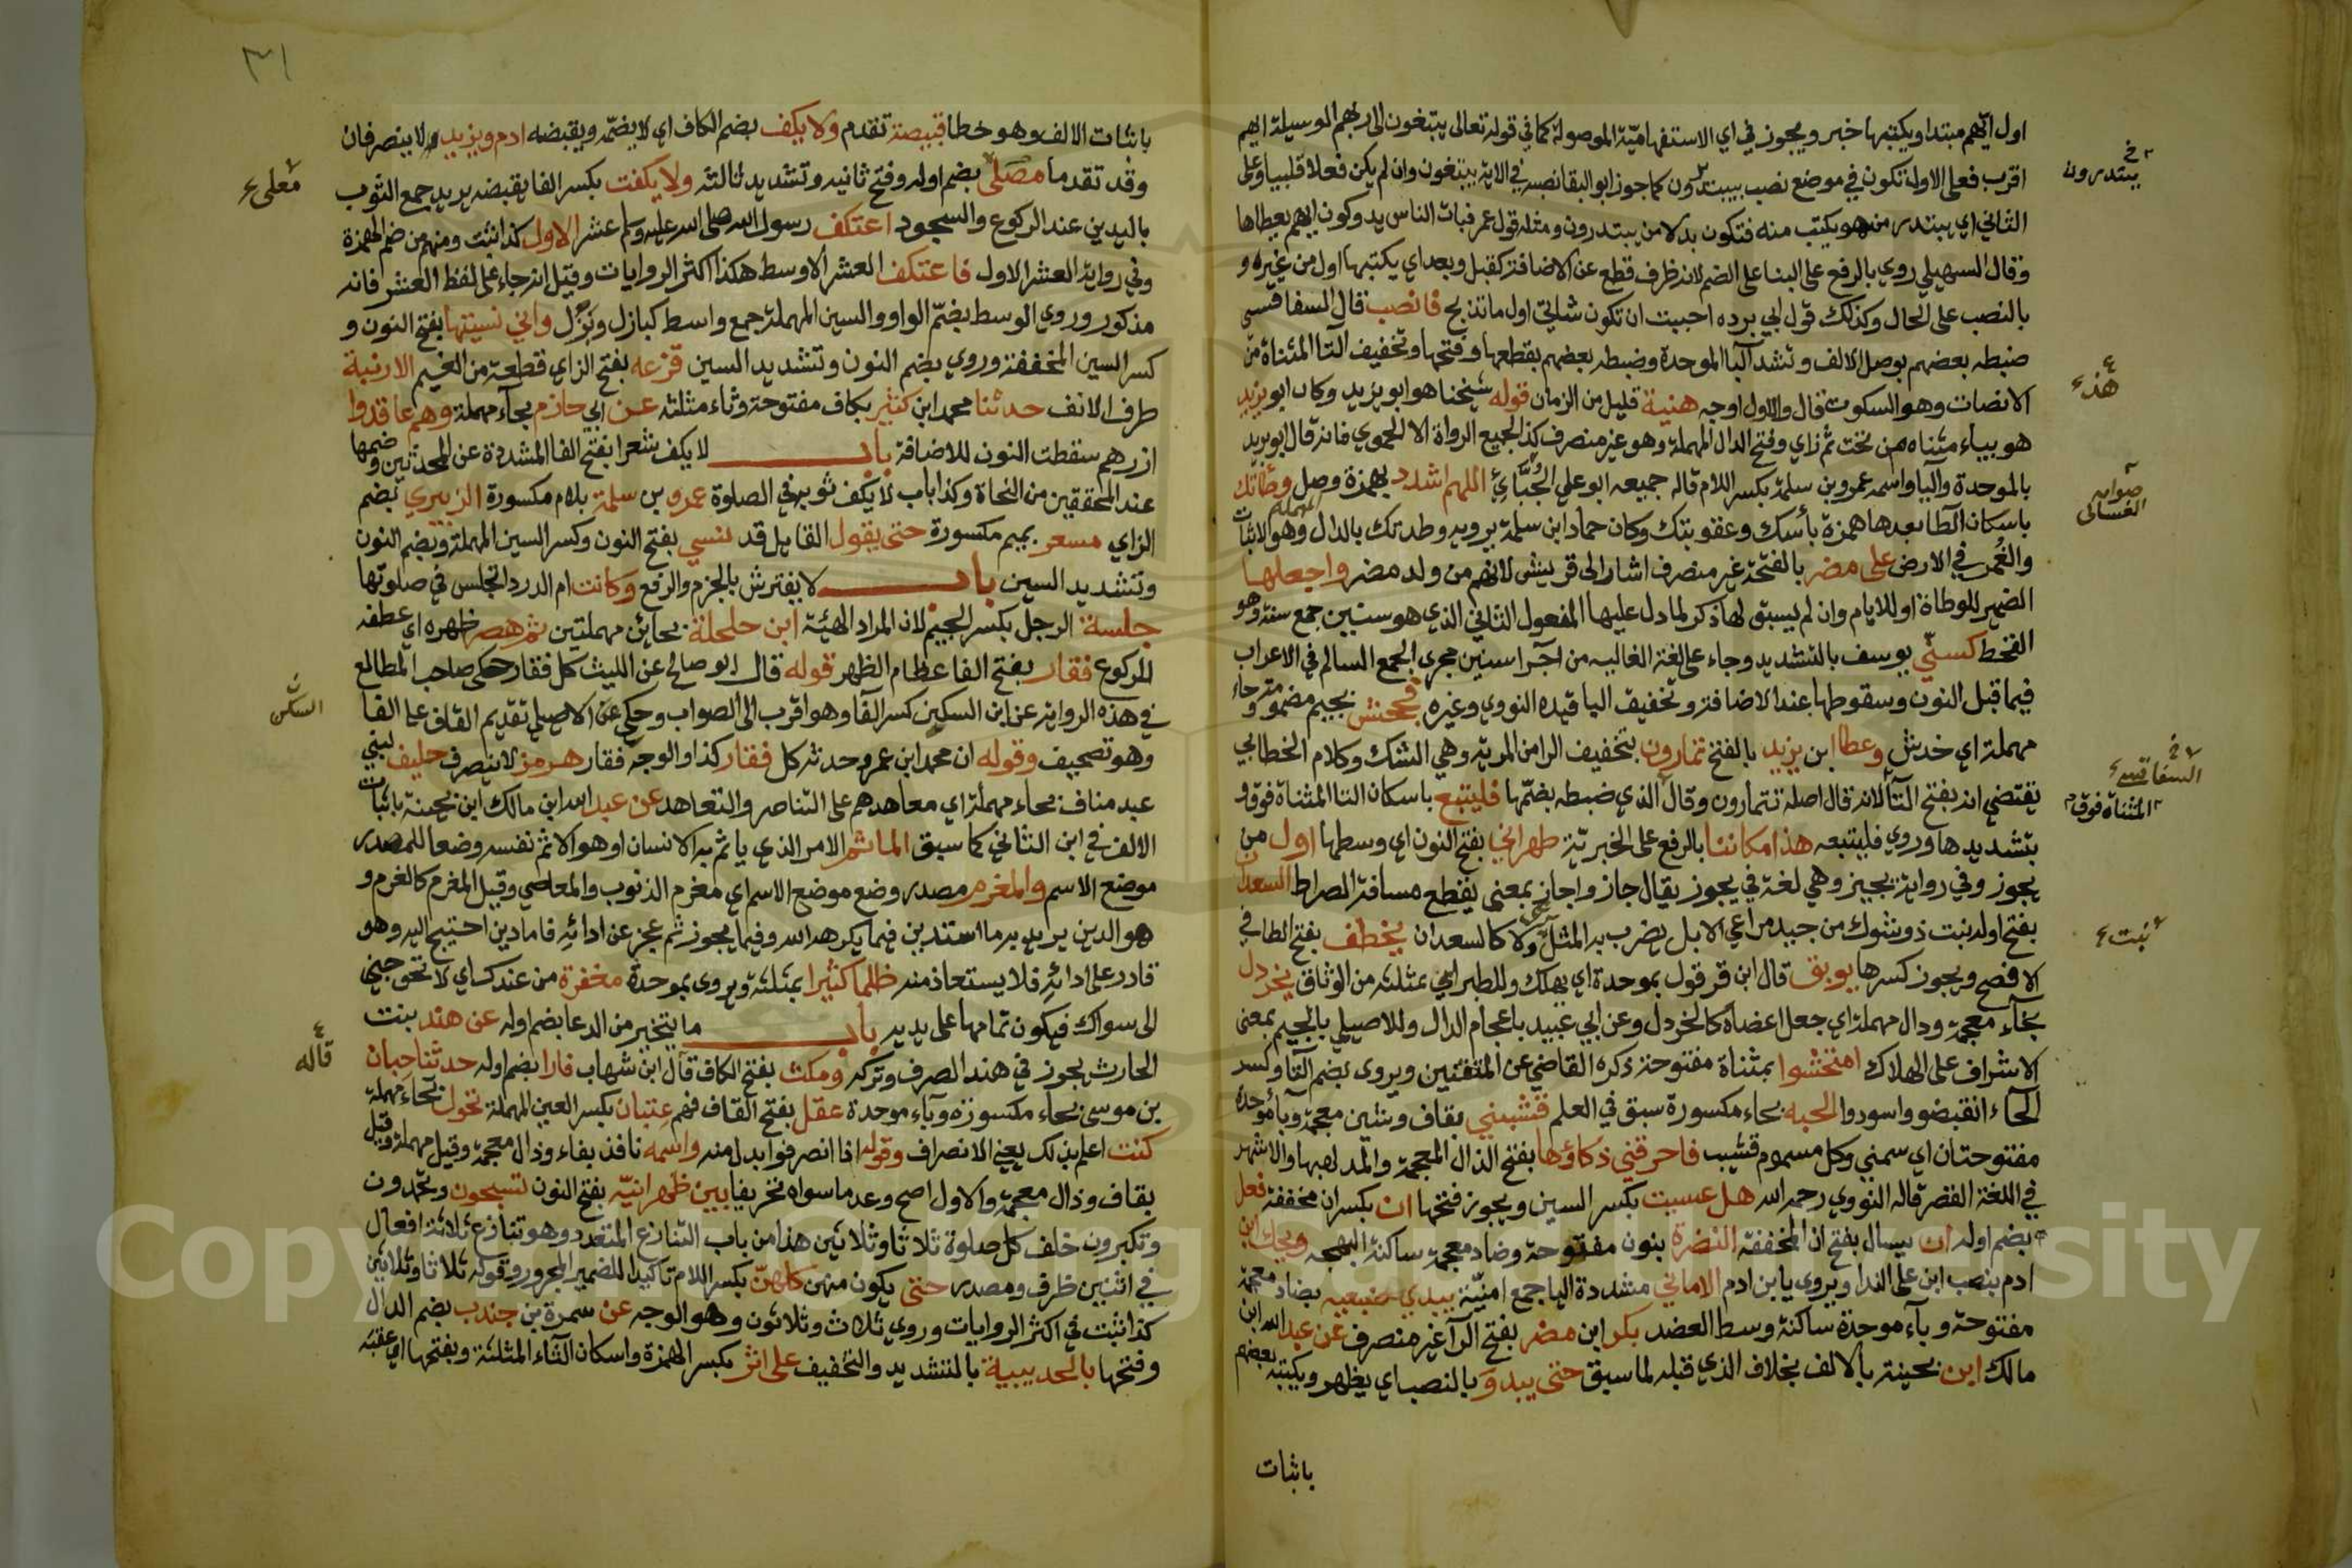 اول ايهم مبتدا ويكتبها خبر ويجوز في اي الاستفهامية الموصولة كما في قوله تعالى يبتغون الى ربهم الوسيلة ايهم
اقرب فعلى الاول تكون في موضع نصب بيبتدرون كما جوز ابو البقا نصبه في الاية يبتغون وان لم يكن فعلا قلبيا وعلى
الثاني اي يبتدر من هو يكتب منه فتكون بدلا من يبتدرون ومثله قول عمر فبات الناس يدوكون ايهم يعطاها
وقال السهيلي روي بالرفع على البنا على الضم لانه ظرف قطع عن الاضافة كقبل وبعد اي يكتبها اول من غيره و
بالنصب على الحال وكذلك قول ابي برده احببت ان تكون شاتي اول ما تذبح فانصب قال السفاقسي
ضبطه بعضهم بوصل الالف وتشد البا الموحدة وضبطه بعضهم بقطعها وفتحها وتخفيف التا المثناة من
الانصات وهو السكوت قال والاول اوجه هنية قليل من الزمان قوله شيخنا هو ابو يزيد وكان ابو يزيد
هو بياء مثناه من تحت ثم زاي وفتح الدال المهملة وهو غير منصرف كذا لجميع الرواة الا الحموي فانه قال ابو بريد
بالموحدة واليا واسمه عمرو بن سلمة بكسر اللام قاله جميعه ابو علي الجُبَّائِي اللهم اشدد بهمزة وصل وطأتك
باسكان الطا بعدها همزة بأسك وعقوبتك وكان حماد ابن سلمة يرويه وطدتك بالدال المهملة وهو الاثبات
والغمر في الارض على مضر بالفتحة غير منصرف اشار الى قريش لانهم من ولد مضر واجعلها
الضمير للوطاة او للايام وان لم يسبق لها ذكر لما دل عليها المفعول الثاني الذي هو سنين جمع سنة وهو
القحط كسني يوسف بالتشديد وجاء على لغة الغالبه من اجرا سنين مجرى الجمع السالم في الاعراب
فيما قبل النون وسقوطها عند الاضافة وتخفيف اليا قيده النووي وغيره فجحش بجيم مضمومة وحاء
مهملة اي خدش وعطا ابن يزيد بالفتح تمارون بتخفيف الرا من المرية وهي الشك وكلام الخطابي
يقتضي انه بفتح التا لانه قال اصله تتمارون وقال الذي ضبطه بضمها فليتبع باسكان التا المثناة فوق و
بتشديدها وروي فليتبعه هذا مكاننا بالرفع على الخبرية ظهراني بفتح النون اي وسطها اول من
يجوز وفي رواية يجيز وهي لغة في يجوز يقال جاز واجاز بمعنى يقطع مسافة الصراط السعدان
بفتح اوله نبت ذو شوك من جيد مراعي الابل يضرب به المثل مرعى ولا كالسعدان يخطف بفتح الطا في
الافصح ويجوز كسرها يوبق قال ابن قرقول بموحدة اي يهلك وللطبراني بمثلثه من الوثاق يخردل
بخاء معجمة ودال مهملة اي جعل اعضاه كالخردل وعن ابي عبيد باعجام الدال وللاصيلي بالجيم بمعنى
الاشراف على الهلاك امتحشوا بمثناة مفتوحة ذكره القاضي عن المتقنين ويروى بضم التا وكسر
الحاء انقبضو واسودوا الحبه بحاء مكسورة سبق في العلم قشبني بقاف وشين معجمة وبا موحدة
مفتوحتان اي سمني وكل مسموم قشيب فاحرقني ذكاؤها بفتح الذال المعجمة والمد لهبها والاشهر
في اللغة القصر قاله النووي رحمه الله هل عسيت بكسر السين ويجوز فتحها ان بكسر ان مخففة فعل
بضم اوله ان يسال بفتح ان المخففه النضرة بنون مفتوحة وضاد معجمة ساكنة البهجه ويحك ابن
ادم بنصب ابن على الندا ويروى يا بن ادم الاماني مشددة اليا جمع امنيّة يبدي ضبعيه بضاد معجمة
مفتوحة وباء موحدة ساكنة وسط العضد بكر ابن مضر بفتح الرا غير منصرف عن عبد الله ابن
مالك ابن بحينة بالالف بخلاف الذي قبله لما سبق حتى يبدو بالنصب اي يظهر ويكتبه بعضهم
باثبات
يبتدرون
هذه
صوابه
الغساني
السفاقسي
المثناة فوق
نبت
٣١
باثبات الالف وهو خطا قبيصة تقدم ولا يكف بضم الكاف اي لا يضمه ويقبضه ادم ويزيد لا ينصرفان
وقد تقدما مصلى بضم اوله وفتح ثانيه وتشديد ثالثه ولا يكفت بكسر الفا يقبضه يريد جمع الثوب
باليدين عند الركوع والسجود اعتكف رسول الله صلى الله عليه وسلم عشر الاول كذا ثبت ومنهم من ضم الهمزة
وفي رواية العشر الاول فاعتكف العشر الاوسط هكذا اكثر الروايات وقيل انه جاء على لفظ العشر فانه
مذكور وروي الوسط بضم الواو والسين المهملة جمع واسط كبازل وبُزُل واني نسيتها بفتح النون و
كسر السين المخففة وروي بضم النون وتشديد السين قزعه بفتح الزاي قطعة من الغيم الارنبة
طرف الانف حدثنا محمد ابن كثير بكاف مفتوحة وثاء مثلثة عن ابي حازم بحاء مهملة وهم عاقدوا
ازرهم سقطت النون للاضافة باب لا يكف شعرا بفتح الفا المشددة عن المحدثين وضمها
عند المحققين من النحاة وكذا باب لا يكف ثوبه في الصلوة عمرو بن سلمة بلام مكسورة الزبيري بضم
الزاي مسعر بميم مكسورة حتى يقول القايل قد نسي بفتح النون وكسر السين المهملة وبضم النون
وتشديد السين باب لا يفترش بالجزم والرفع وكانت ام الدردا تجلس في صلوتها
جلسة الرجل بكسر الجيم لان المراد الهيئة ابن حلحلة بحائين مهملتين ثم هصر ظهره اي عطفه
للركوع فقار بفتح الفا عظام الظهر قوله قال ابو صالح عن الليث كل فقار حكى صاحب المطالع
في هذه الرواية عن ابن السكين كسر الفا وهو اقرب الى الصواب وحكي عن الاصيلي تقديم القاف على الفا
وهو تصحيف وقوله ان محمد ابن عمرو حدثه كل فقار كذا والوجه فقاره هرمز لا ينصرف حليف لبني
عبد مناف بحاء مهملة اي معاهدهم على التناصر والتعاهد عن عبد الله ابن مالك ابن بحينة باثبات
الالف في ابن الثاني كما سبق الماثم الامر الذي ياثم به الانسان او هو الاثم نفسه وضعا للمصدر
موضع الاسم والمغرم مصدر وضع موضع الاسم اي مغرم الذنوب والمعاصي وقيل المغرم كالغرم و
هو الدين يريد به ما استدين فيما يكرهه الله وفيما يجوز ثم عجز عن ادائه فاما دين احتيج اليه وهو
قادر على ادائه فلا يستعاذ منه ظلما كثيرا بمثلثة ويروى بموحدة مغفرة من عندك اي لا تحوجني
الى سواك فيكون تمامها على يديه باب ما يتخير من الدعا بضم اوله عن هند بنت
الحارث يجوز في هند الصرف وتركه ومكث بفتح الكاف قال ابن شهاب فارا بضم اوله حدثنا حبان
بن موسى بحاء مكسورة وباء موحدة عقل بفتح القاف فهم عتبان بكسر العين المهملة تحول بحاء مهملة
كنت اعلم بذلك يعني الانصراف وقوله اذا انصرفوا بدل منه واسمه نافذ بفاء وذال معجمة وقيل مهملة وقيل
بقاف وذال معجمة والاول اصح وعد ما سواه تحريفا بين ظهرانيه بفتح النون تسبحون وتحمدون
وتكبرون خلف كل صلوة ثلاثا وثلاثين هذا من باب التنازع المتعدد وهو تنازع ثلاثة افعال
في اثنين ظرف ومصدر حتى يكون منهن كلهن بكسر اللام تاكيدا للضمير المجرور وقوله ثلاثا وثلاثين
كذا ثبت في اكثر الروايات وروي ثلاث وثلاثون وهو الوجه عن سمرة بن جندب بضم الدال
وفتحها بالحديبية بالتشديد والتخفيف على اثر بكسر الهمزة واسكان الثاء المثلثة وبفتحها اي عقبه
معلى
السكن
قاله
Copyright © King Saud University